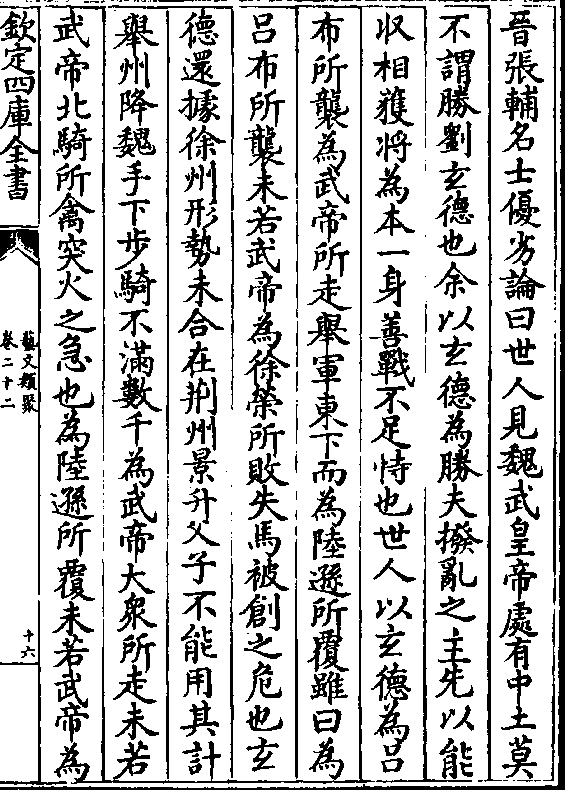 晉張輔名士優劣論曰世人見魏武皇帝處有中土莫
不謂勝劉玄德也余以玄德為勝夫撥亂之主先以能
収相獲將為本一身善戰不足恃也世人以玄德為呂
布所襲為武帝所走舉軍東下而為陸遜所覆雖曰為
呂布所襲未若武帝為徐榮所敗失馬被創之危也玄
德還據徐州形勢未合在荆州景升父子不能用其計
舉州降魏手下步騎不滿數千為武帝大衆所走未若
武帝北騎所禽突火之急也為陸遜所覆未若武帝為
欽定四庫全書
藝文類聚
卷二十二
十六